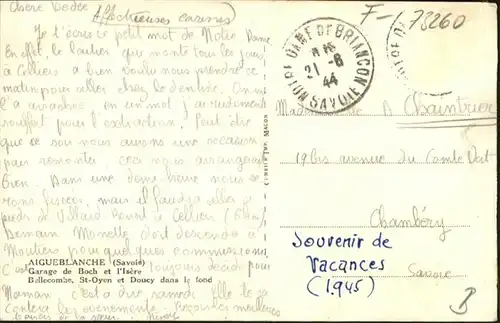 Affectueuses caresses
F - 73260
Je t'écris ce petit mot de Notre Dame
En effet, le laitier qui monte tous les jours
à Celliers a bien voulu nous prendre ce
matin pour aller chez le dentiste. On m'
a arraché en un mot j'ai rudement
souffert pour l'extraction. Peut être
que ce soir nous aurons une occasion
pour remonter ceci nous arrangerait
bien. Dans une demi heure nous se
rons mais il faudra aller à
pieds de Villard Benoit à Celliers
Demain doit descendre à
Moutiers pour quelques commissions.
C'est toujours decidé pour
Maman c'est a dire samedi. Elle te
contera les evenements.
NOTRE DAME DE BRIANÇON
21-8
44
SAVOIE
Mademoiselle A Chaintrier
19 bis avenue du Comte Vert
Chambéry
Savoie
Souvenir de
Vacances
(1945)
B
AIGUEBLANCHE (Savoie)
Garage de Boch et l'Isère
Bellecombe, St-Oyen et Doucy dans le fond